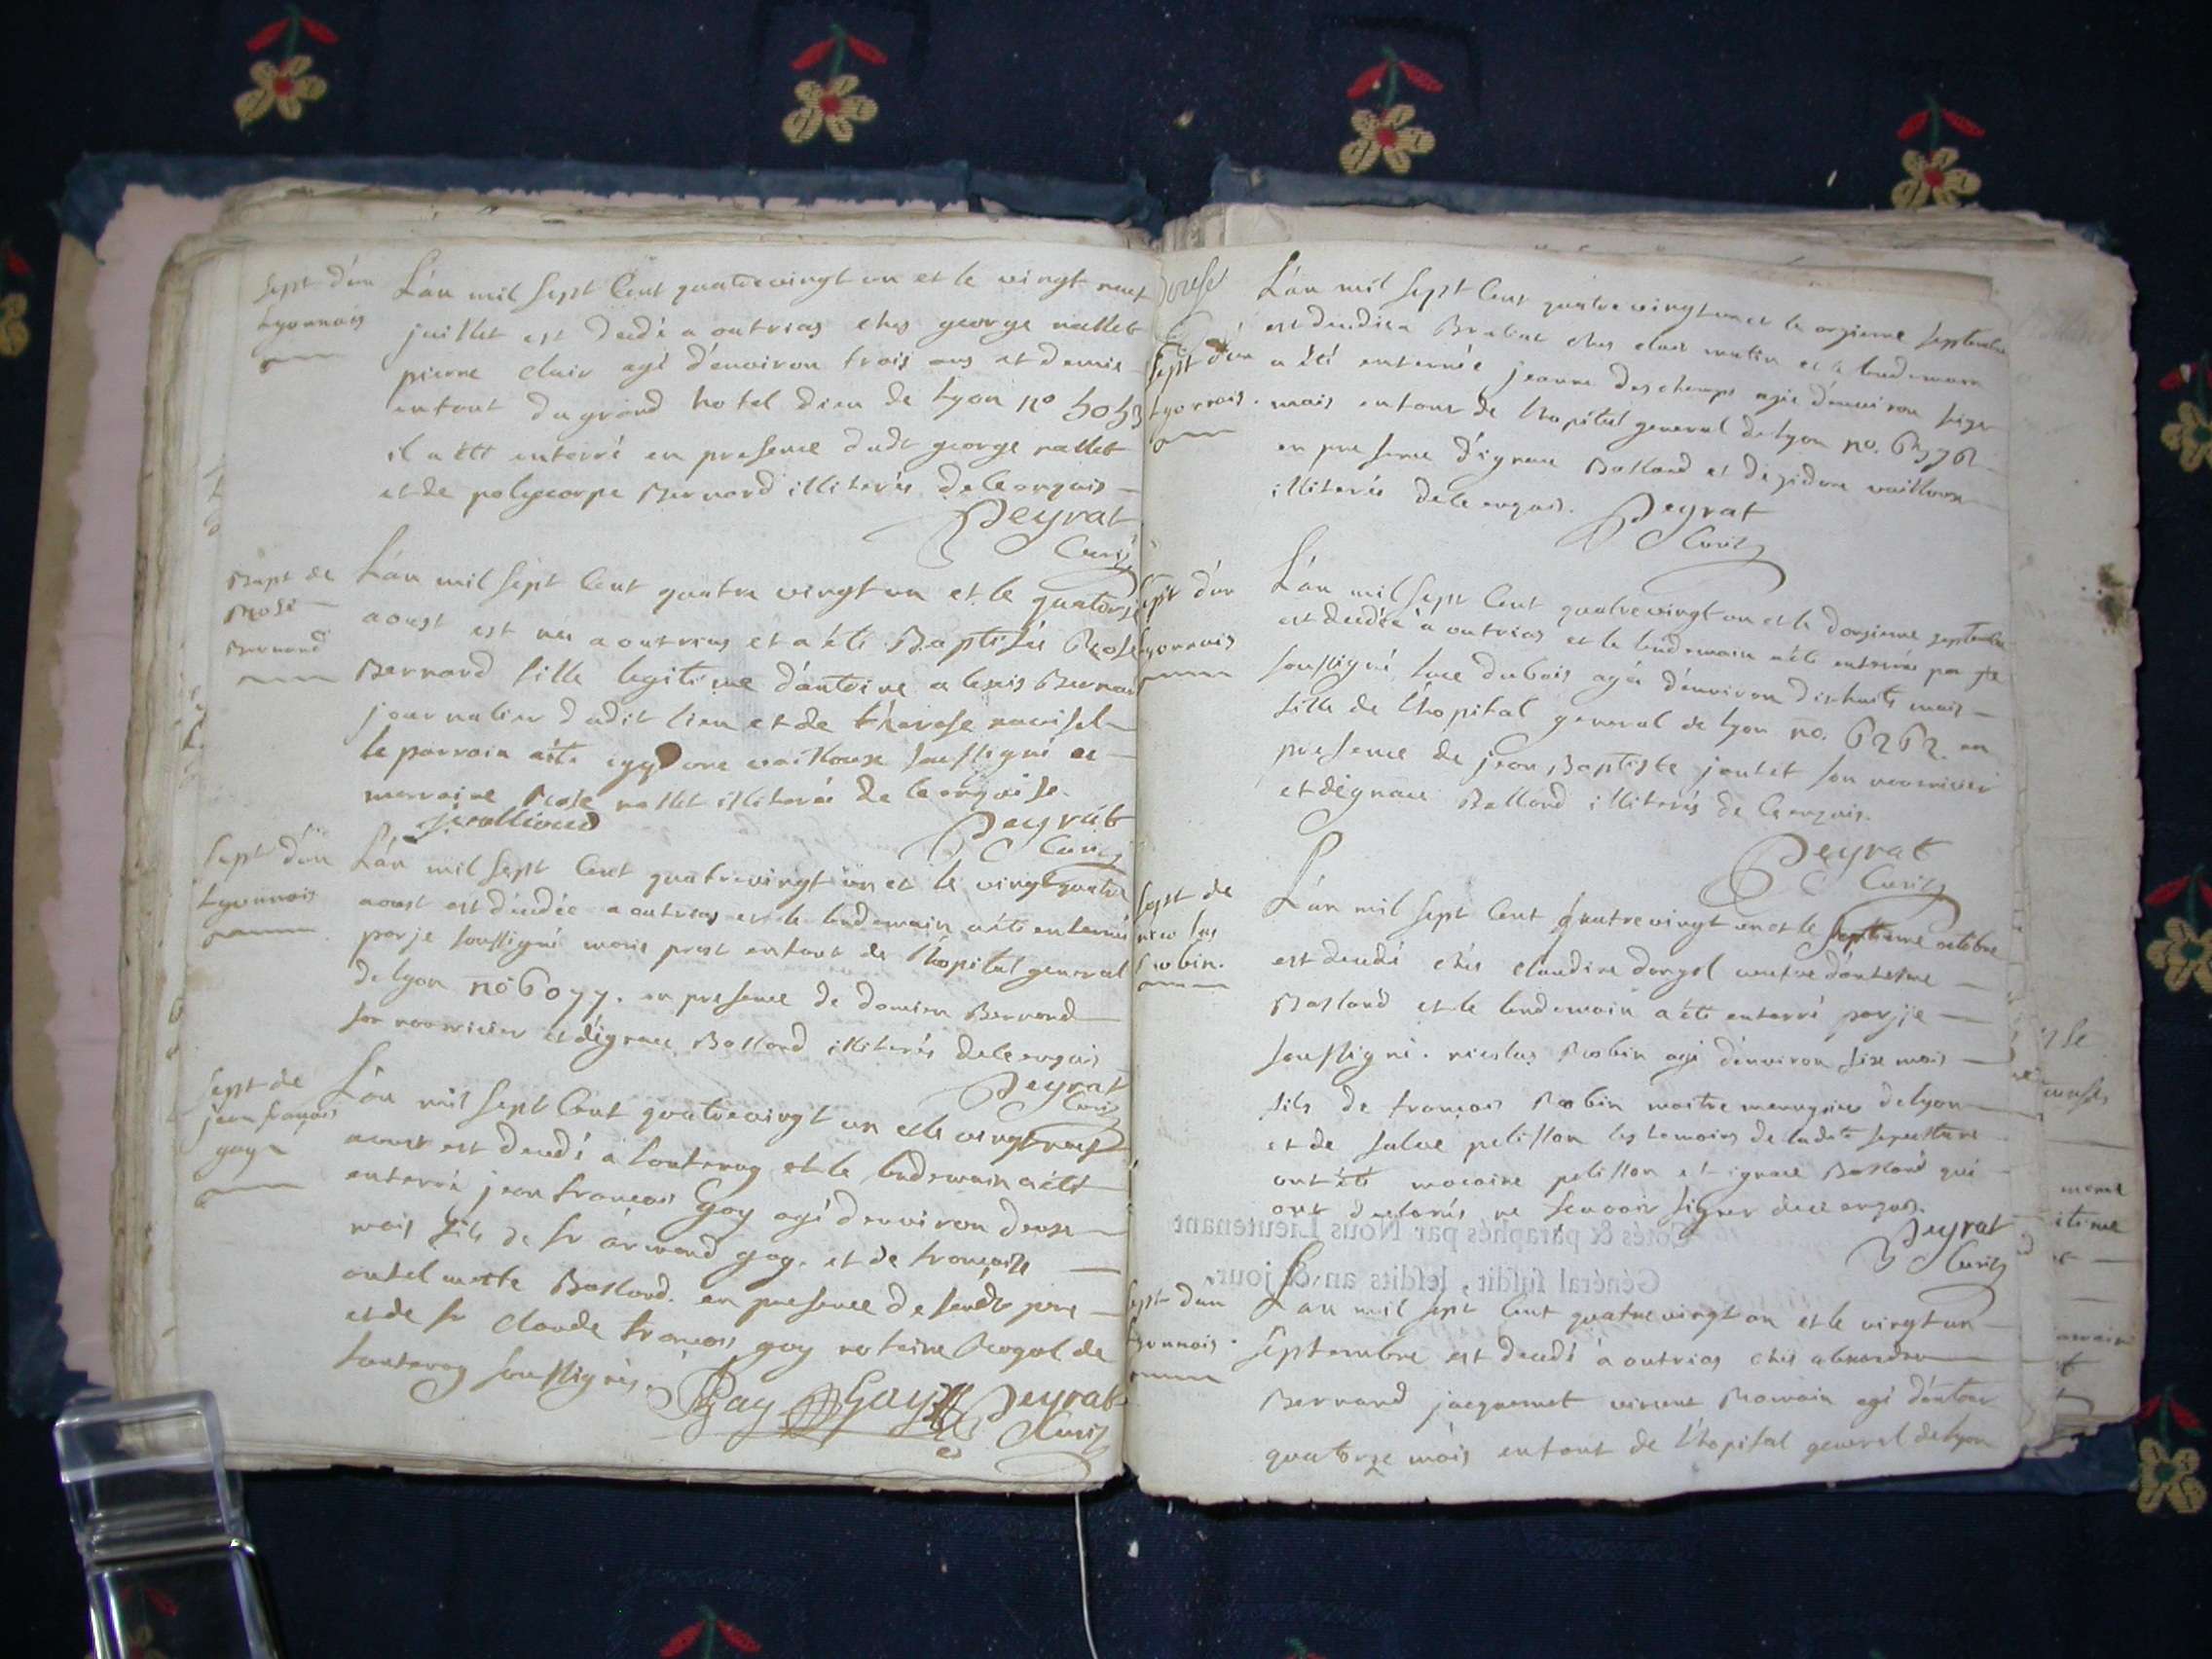 Sept d'un
Lyonnois
L'an mil sept Cent quatrevingt un et le vingt neuf
juillet est decedé a outrias ches george nallet
pierre clair agé d'environ trois ans et demie
enfant du grand hotel dieu de Lyon no
il a été enterré en presence dudt george nallet
et de polycarpe Bernard illiterés de ce enquis
Peyrat
Curé
Bapt de
Rose
Bernard
L'an mil sept Cent quatre vingt un et le quatorze
aoust est née a outrias et a été Baptisée Rose
Bernard fille legitime d'antoine alexis Bernard
journalier dudit lieu et de therese
le parrain a été soussigné et
marraine Rose nallet illiterée de ce enquise.
Peyrat
Curé
Sept d'un
Lyonnois
L'an mil sept Cent quatrevingt un et le vingt quatre
aoust est décédée a outrias et le lendemain a été enterrée
par je soussigné marie prost enfant de l'hopital general
de lyon no 6077. en presence de damien Bernard
son nourricier et d'ignace Balland illiterés de ce enquis
Peyrat
Curé
Sept de
jean françois
gay
L'an mil sept Cent quatrevingt un et le vingt neuf
aoust est decedé a et le lendemain a été
enterré jean françois Gay agé d'environ deux
mois fils de sr armand gay. et de françoise
Balland. en presence de sondt pere
et de sr claude françois gay notaire Royal de
soussignés.
Gay Gay Peyrat
Curé
Sept d'un
Lyonnois.
L'an mil sept Cent quatrevingt un et le onzieme septembre
est decedée a Brabant ches clair mutin et le lendemain
a été enterrée jeanne deschamps agée d'environ seize
mois enfant de l'hopital general de lyon no.
en presence d'ignace Balland et de
illiterés de ce enquis.
Peyrat
Curé
Sept d'un
Lyonnois
L'an mil sept Cent quatrevingt un et le douzieme septembre
est decedée à outrias et le lendemain a été enterrée par je
soussigné luce dubois agée d'environ dixhuits mois
fille de l'hopital general de lyon no. 6262 en
presence de jean Baptiste joutet son nourricier
et d'ignace Balland illiterés de ce enquis.
Peyrat
Curé
Sept de
nicolas
Robin.
L'an mil sept Cent quatrevingt un et le septieme octobre
est decedé chés claudine dorgel veufve d'antelme
Balland et le lendemain a été enterré par je
soussigné. nicolas Robin agé d'environ sixe mois
fils de françois Robin maitre menuysier de lyon
et de pelisson les temoins de ladte sepulture
ont été macaire pelisson et ignace Balland qui
ont declarés ne scavoir signer de ce enquis.
Peyrat
Curé
Cotés & paraphés par Nous Lieutenant
Général susdit, lesdits an & jour.
Sept d'un
Lyonnois.
L'an mil sept Cent quatrevingt un et le vingt un
septembre est decedé a outrias chés alexandre
Bernard jacquemet vincent Romain agé d'entour
quatorze mois enfant de l'hopital general de lyon